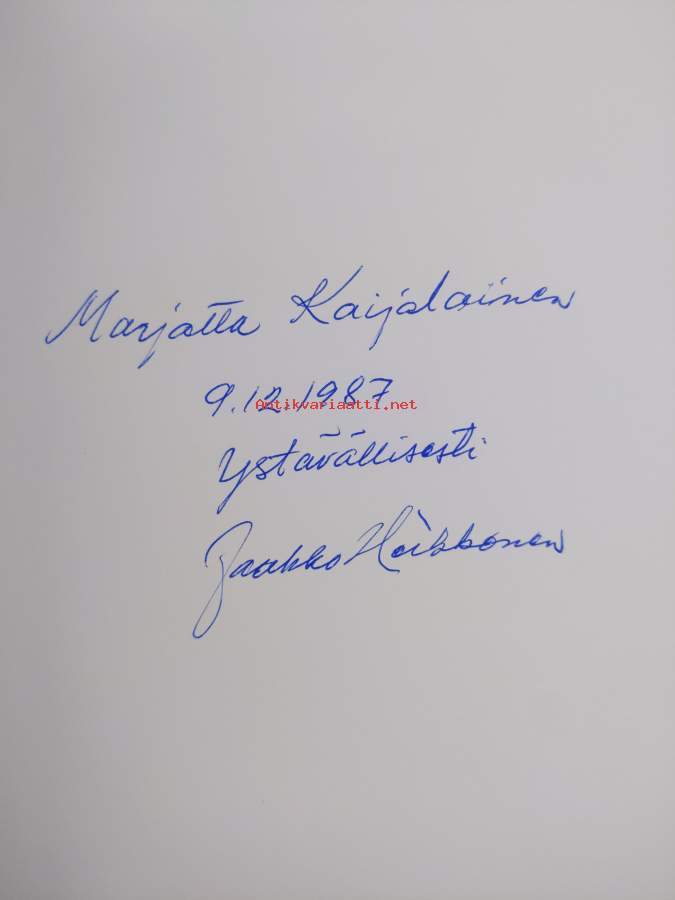 Marjatta Kaijalainen
9.12.1987
Antikvariaatti.net
Ystävällisesti
Jaakko Heikkonen